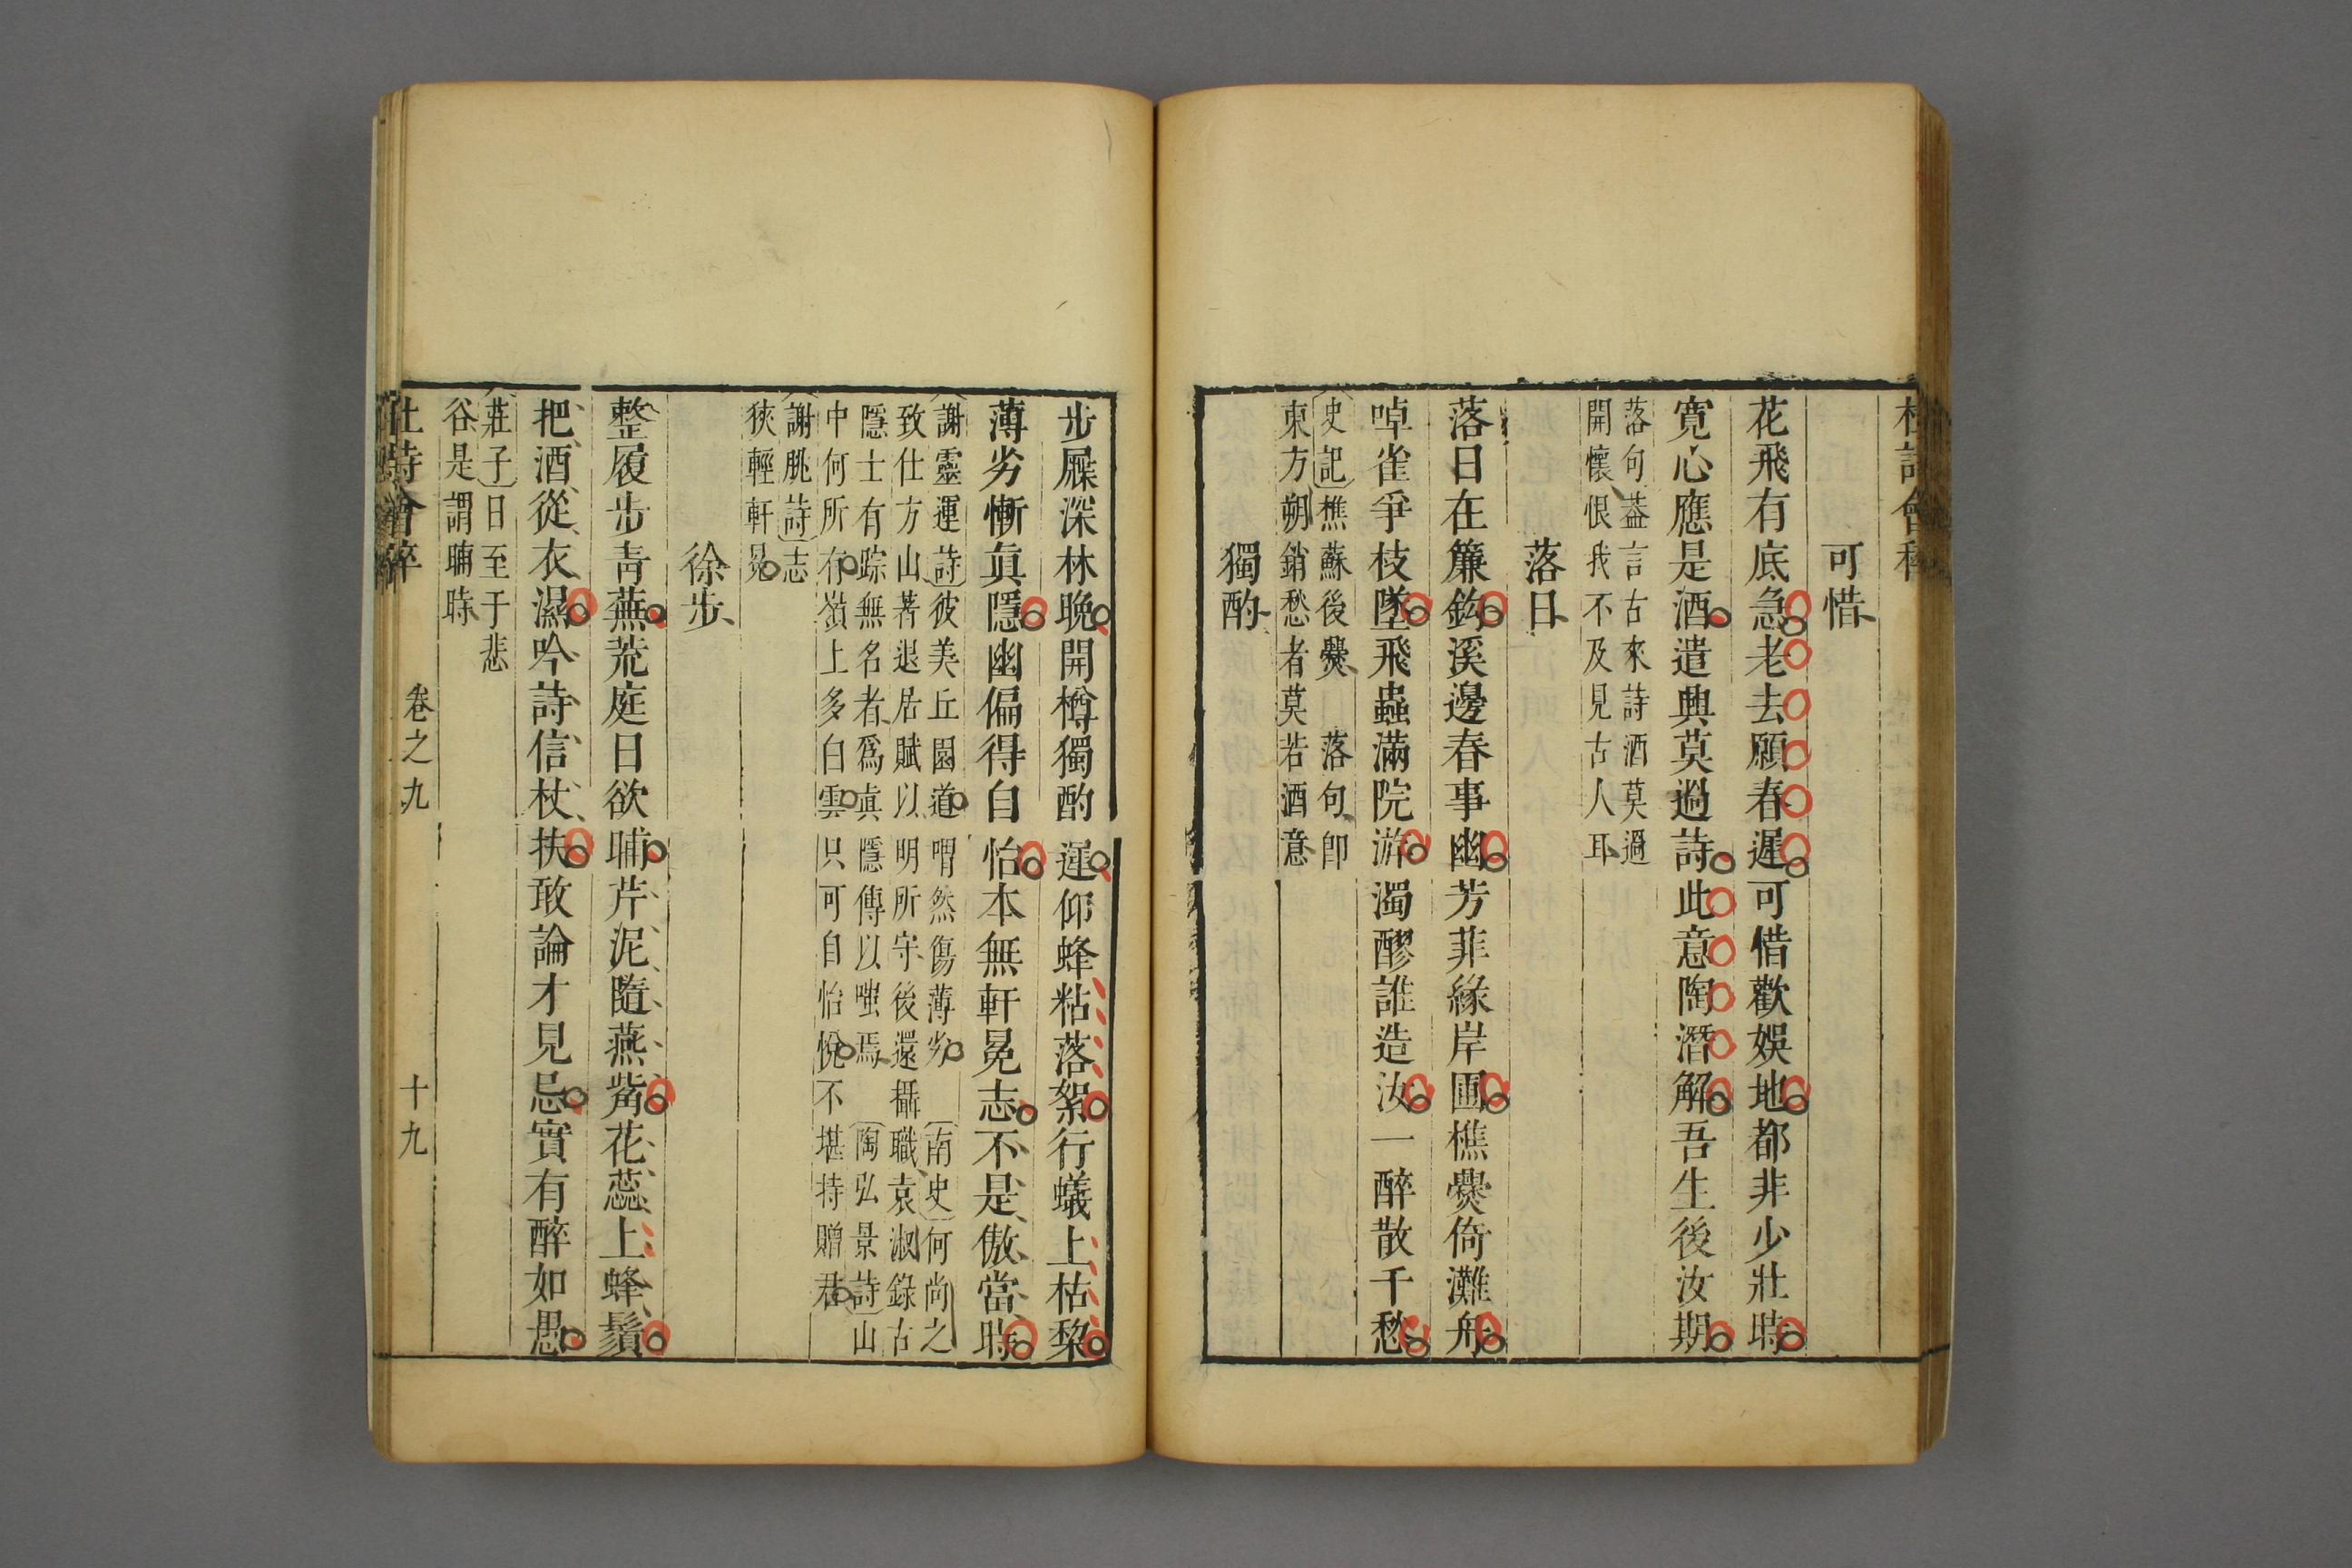 杜詩會稡
可惜
花飛有底急老去願春遲可惜歡娛地都非少壯時
寬心應是酒遣興莫過詩此意陶潛解吾生後汝期
落句葢言古來詩酒莫過
開懷恨我不及見古人耳
落日
落日在簾鈎溪邊春事幽芳菲緣岸圃樵爨倚灘舟
啅雀爭枝墜飛蟲滿院游濁醪誰造汝一醉散千愁
史記樵蘇後爨 落句卽
東方朔銷愁者莫若酒意
獨酌
步屧深林晚開樽獨酌遲仰蜂粘落絮行蟻上枯棃
薄劣慚眞隱幽偏得自怡本無軒冕志不是傲當時
謝靈運詩彼美丘園道喟然傷薄劣 南史何尚之
致仕方山著退居賦以明所守後還攝職袁淑錄古
隱士有踪無名者爲眞隱傳以嗤焉 陶弘景詩山
中何所有嶺上多白雲只可自怡悅不堪持贈君
謝朓詩志
狹輕軒冕
徐步
整履步靑蕪荒庭日欲晡芹泥隨燕觜花蕊上蜂鬚
把酒從衣濕吟詩信杖扶敢論才見忌實有醉如愚
莊子日至于悲
谷是謂晡時
杜詩會稡 卷之九 十九